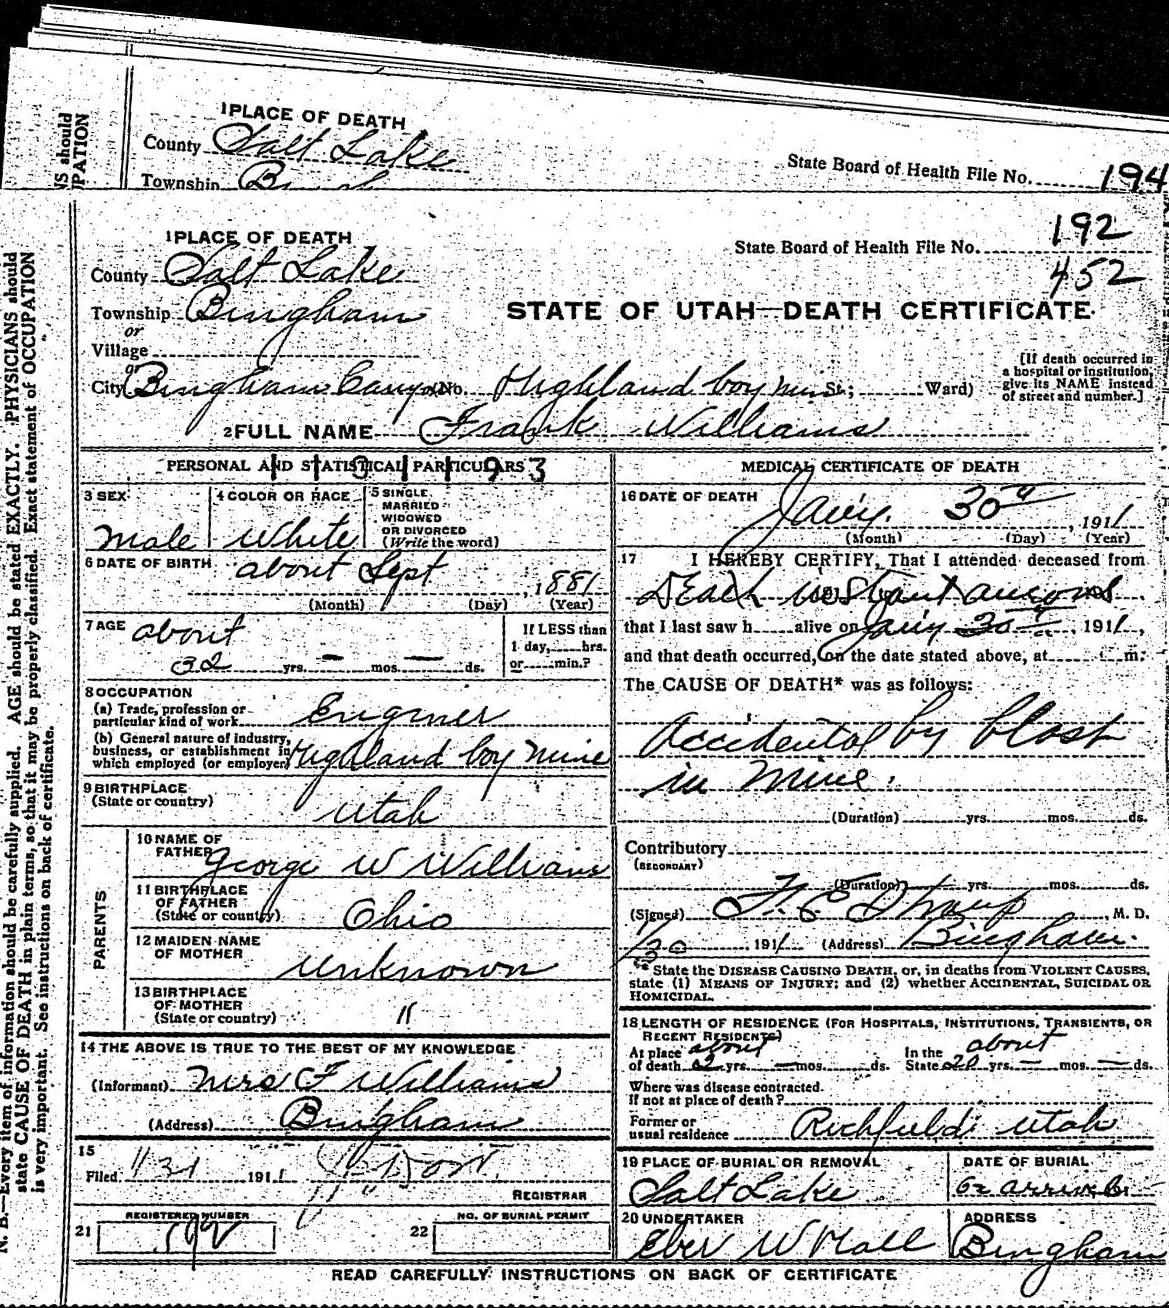 1 PLACE OF DEATH
County Salt Lake
Township
State Board of Health File No. 194
NS should
PATION
1 PLACE OF DEATH
State Board of Health File No. 192
452
County Salt Lake
Township Bingham
or
Village
or
STATE OF UTAH—DEATH CERTIFICATE
City Bingham Canyon (No. Highland boy mine St.; Ward)
[If death occurred in a hospital or institution, give its NAME instead of street and number.]
2 FULL NAME Frank Williams
PERSONAL AND STATISTICAL PARTICULARS
3 SEX
Male
4 COLOR OR RACE
White
5 SINGLE, MARRIED WIDOWED OR DIVORCED (Write the word)
6 DATE OF BIRTH about Sept, 1881
(Month) (Day) (Year)
7 AGE about
32 yrs. — mos. — ds.
If LESS than 1 day, hrs. or min.?
8 OCCUPATION
(a) Trade, profession or particular kind of work Enginer
(b) General nature of industry, business, or establishment in which employed (or employer) Highland boy mine
9 BIRTHPLACE
(State or country) Utah
PARENTS
10 NAME OF FATHER George W Williams
11 BIRTHPLACE OF FATHER (State or country) Ohio
12 MAIDEN NAME OF MOTHER Unknown
13 BIRTHPLACE OF MOTHER (State or country) "
14 THE ABOVE IS TRUE TO THE BEST OF MY KNOWLEDGE
(Informant) Mrs F Williams
(Address) Bingham
15
Filed 1/31 1911
REGISTRAR
REGISTERED NUMBER
21 192
NO. OF BURIAL PERMIT
22
MEDICAL CERTIFICATE OF DEATH
16 DATE OF DEATH Jany. 30th, 1911
(Month) (Day) (Year)
17 I HEREBY CERTIFY, That I attended deceased from
Death instantaneous
that I last saw h alive on Jany 30th, 1911,
and that death occurred, on the date stated above, at m.
The CAUSE OF DEATH* was as follows:
Accidental by blast
in Mine.
(Duration) yrs. mos. ds.
Contributory
(SECONDARY)
(Duration) yrs. mos. ds.
(Signed) F. E. Straup, M. D.
1/30 1911 (Address) Bingham.
* State the DISEASE CAUSING DEATH, or, in deaths from VIOLENT CAUSES, state (1) MEANS OF INJURY; and (2) whether ACCIDENTAL, SUICIDAL OR HOMICIDAL.
18 LENGTH OF RESIDENCE (FOR HOSPITALS, INSTITUTIONS, TRANSIENTS, OR RECENT RESIDENTS)
At place of death about 2 yrs. — mos. ds. In the State about 20 yrs. — mos. — ds.
Where was disease contracted.
If not at place of death?
Former or usual residence Richfield Utah
19 PLACE OF BURIAL OR REMOVAL
Salt Lake
DATE OF BURIAL
20 UNDERTAKER
Eber W Hall
ADDRESS
Bingham
READ CAREFULLY INSTRUCTIONS ON BACK OF CERTIFICATE
N. B.—Every item of information should be carefully supplied. AGE should be stated EXACTLY. PHYSICIANS should
state CAUSE OF DEATH in plain terms, so that it may be properly classified. Exact statement of OCCUPATION
is very important. See instructions on back of certificate.